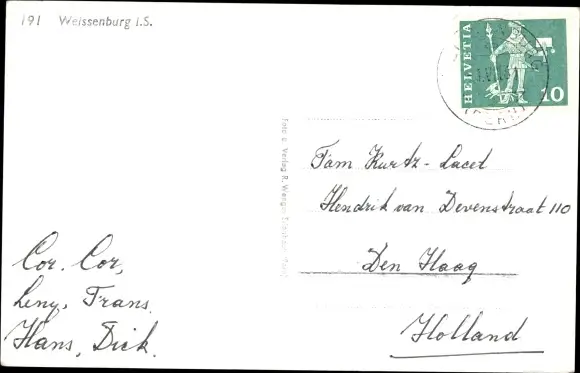 191 Weissenburg i.S.
HELVETIA
10
Foto u. Verlag R. Wenger
Fam Kurtz-Lacet
Hendrik van Devenstraat 110
Den Haag
Holland
Cor. Cor,
Leny, Frans.
Hans, Dick.